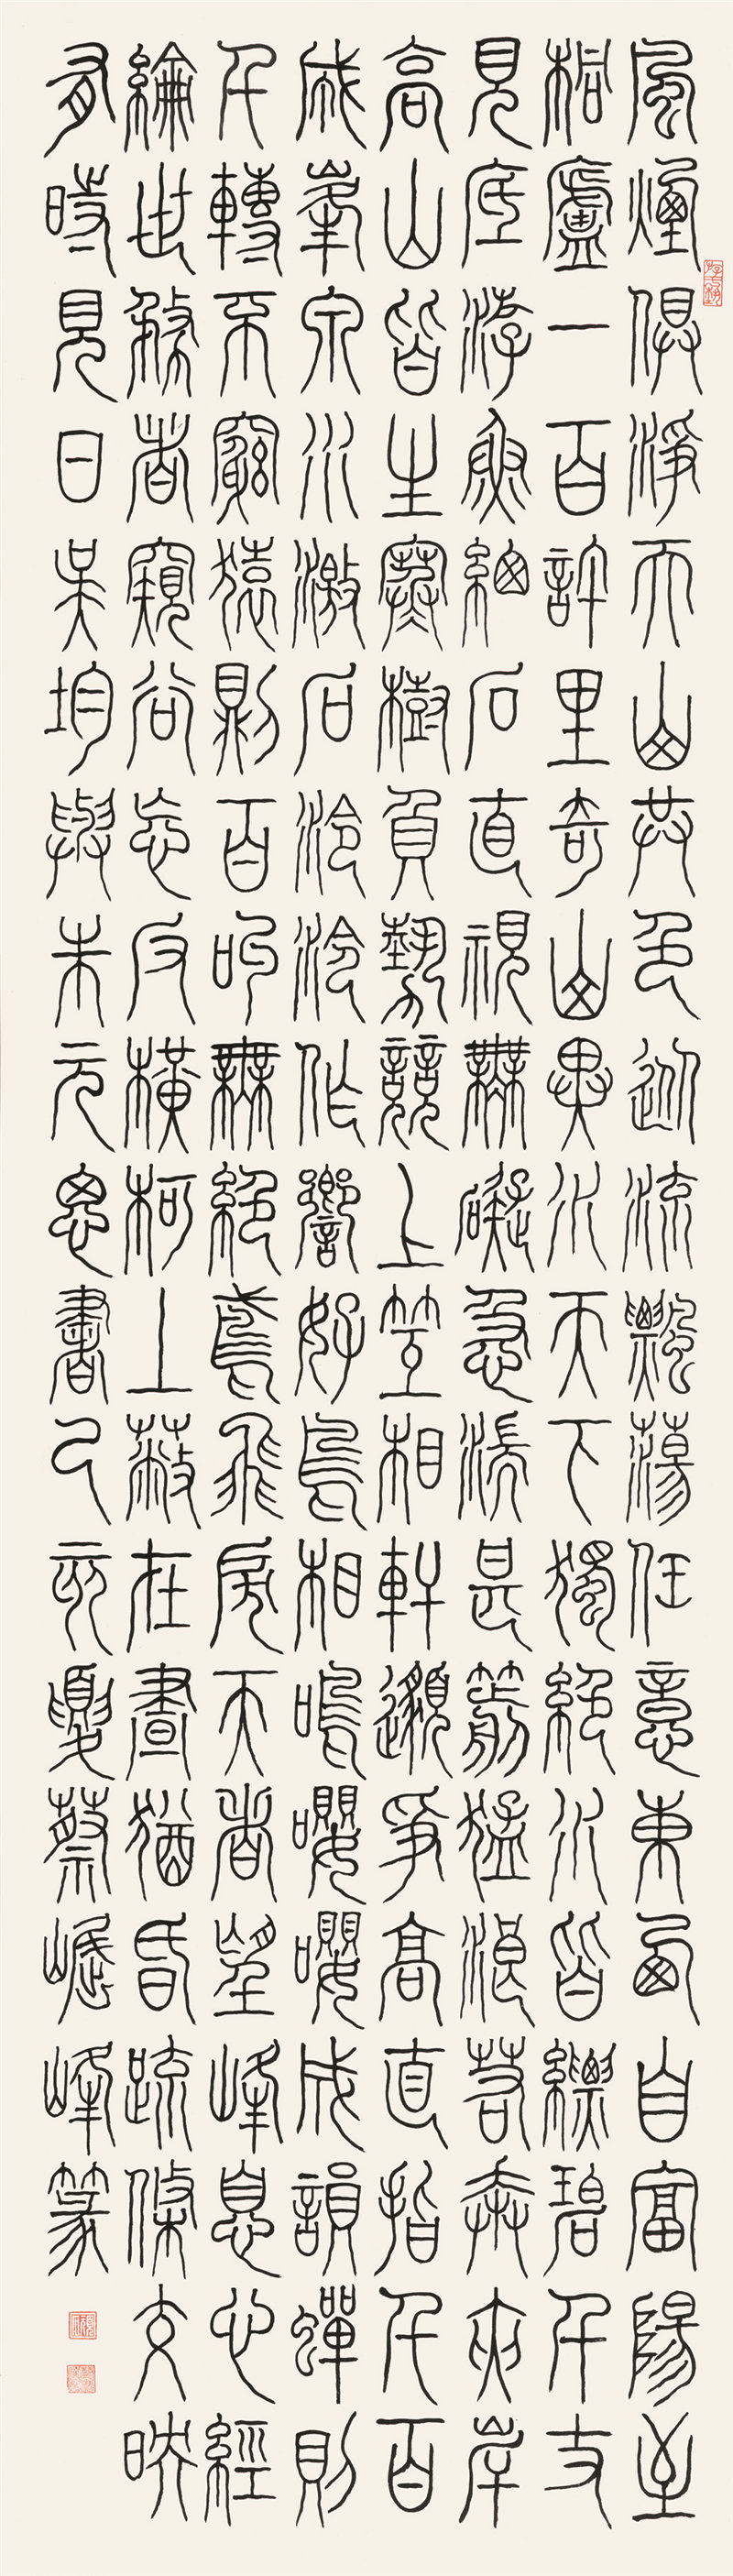 風煙俱淨天山共色從流飄蕩任意東西自富陽至
桐廬一百許里奇山異水天下獨絕水皆縹碧千丈
見底游魚細石直視無礙急湍甚箭猛浪若奔夾岸
高山皆生寒樹負勢競上互相軒邈爭高直指千百
成峯泉水激石泠泠作響好鳥相鳴嚶嚶成韻蟬則
千轉不窮猿則百叫無絕鳶飛戾天者望峰息心經
綸世務者窺谷忘反橫柯上蔽在晝猶昏疏條交映
有時見日吳均與朱元思書己亥夏蔡峰篆